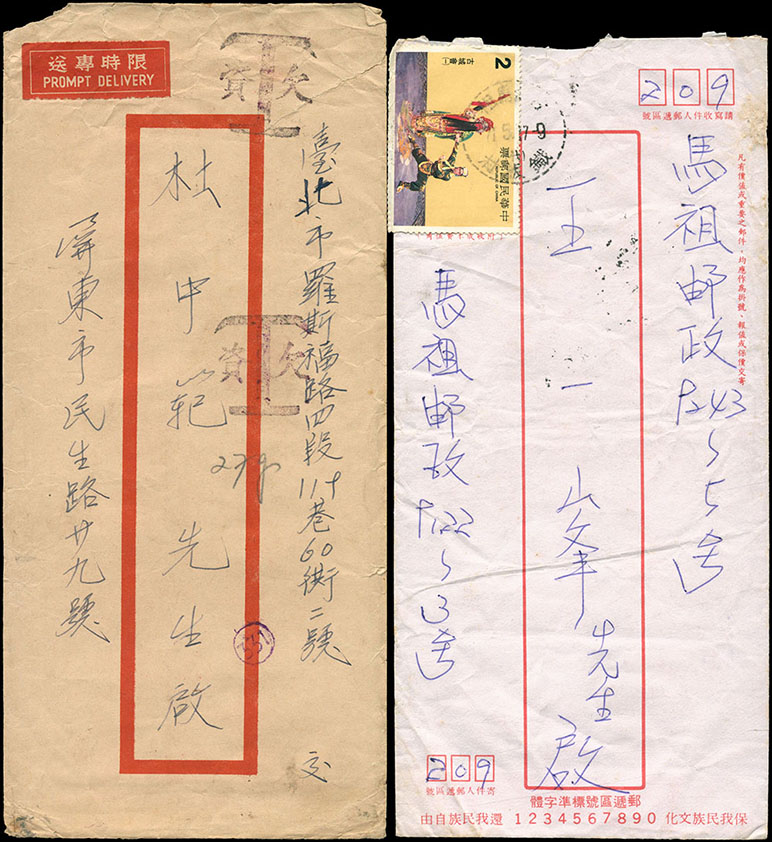 限時專送
PROMPT DELIVERY
欠資
T
臺北市羅斯福路四段119巷60衖二號
交
杜中範先生啟
欠資
T
屏東市民生路廿九號
209
請寫收件人郵遞區號
凡有價值或重要之郵件，均應作為掛號、報值或保價交寄
馬祖邮政
5号
王一峯先生啟
2
古城會
中華民國郵票
馬祖邮政
3号
209
寄件人郵遞區號
郵遞區號標準字體
1234567890
保我民族文化
還我民族自由